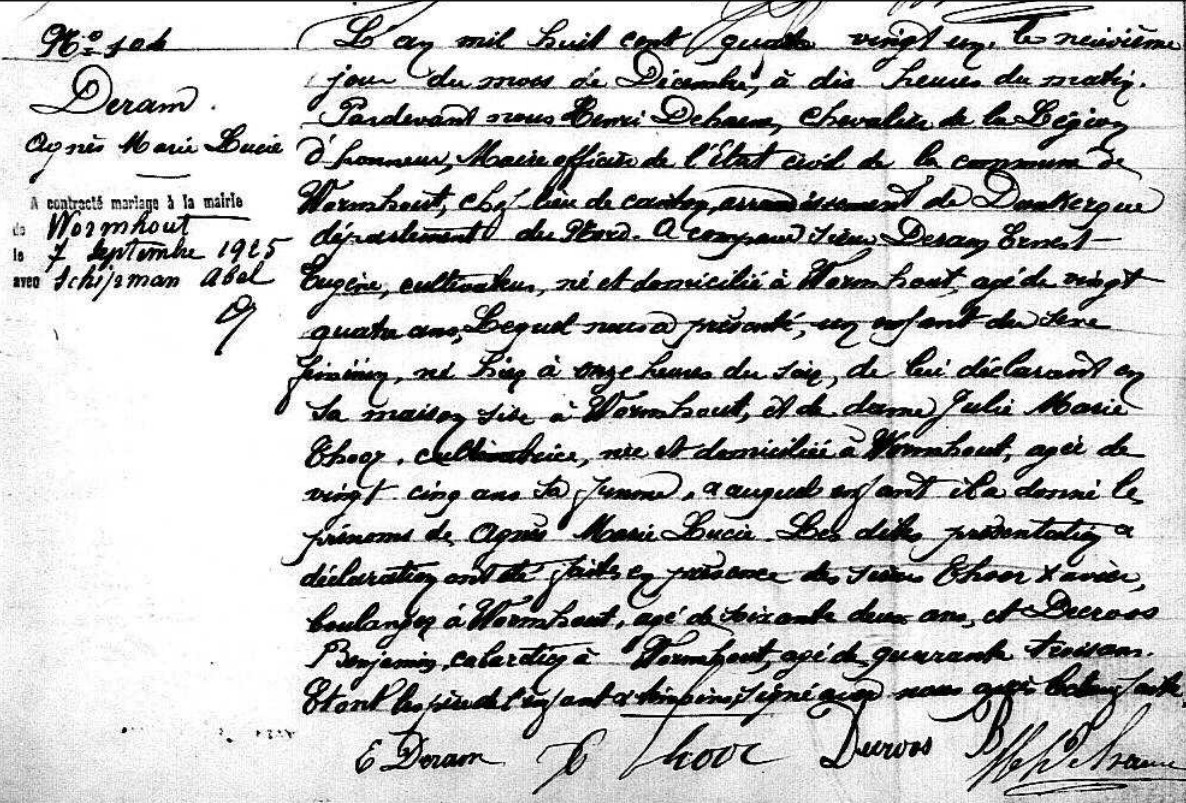 N° 104
Deram.
Agnès Marie Lucie
A contracté mariage à la mairie
de Wormhout
le 7 Septembre 1925
avec Schipman Abel
L'an mil huit cent quatre vingt un, le neuvième
jour du mois de Décembre, à dix heures du matin.
Pardevant nous Henri Dehaene, Chevalier de la Légion
d'honneur, Maire officier de l'Etat civil de la commune de
Wormhout, chef lieu de canton, arrondissement de Dunkerque
département du Nord. A comparu sieur Deram Ernest
Eugène, cultivateur, né et domicilié à Wormhout, agé de vingt
quatre ans, Lequel nous a présenté, un enfant du sexe
féminin, né hier à onze heures du soir, de lui déclarant en
sa maison sise à Wormhout, et de dame Julie Marie
Thooz, cultivatrice, née et domiciliée à Wormhout, agée de
vingt cinq ans sa femme, auquel enfant il a donné les
prénoms de Agnès Marie Lucie. Les dites présentation et
déclaration ont été faites en présence des sieurs Thoor Xavier,
boulanger à Wormhout, agé de soixante deux ans, et Decroos
Benjamin, cabaretier à Wormhout, agé de quarante trois ans.
Et ont les père de l'enfant et témoins, signé avec nous après lecture faite.
E Deram X Thoor Decroos Hy Dehaene